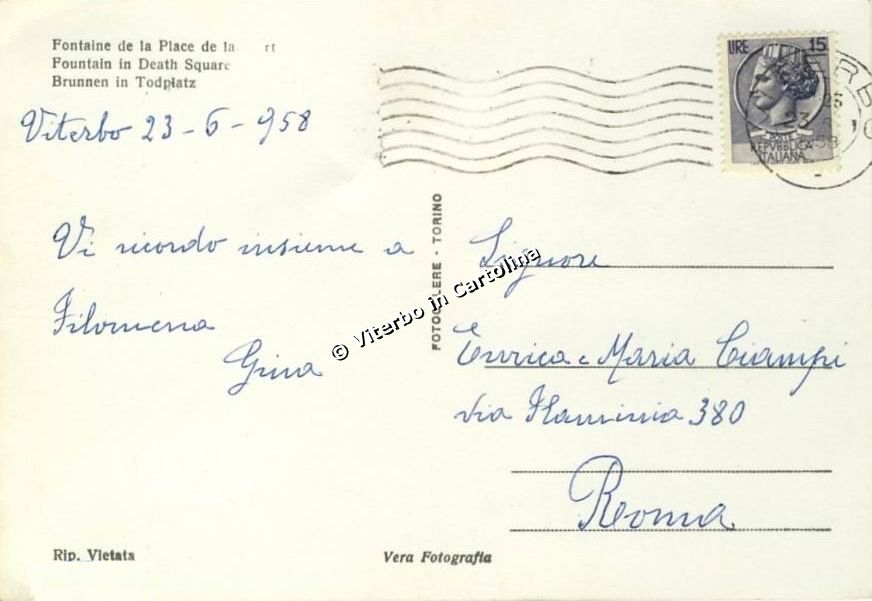 Fontaine de la Place de la rt
Fountain in Death Square
Brunnen in Todplatz
Viterbo 23-6-958
Vi ricordo insieme a
Filomena
Gina
LIRE 15
POSTE
REPVBBLICA
ITALIANA
23
58
FOTOCELERE - TORINO
© Viterbo in Cartolina
Signore
Enrica e Maria Ciampi
Via Flaminia 380
Roma
Rip. Vietata
Vera Fotografia